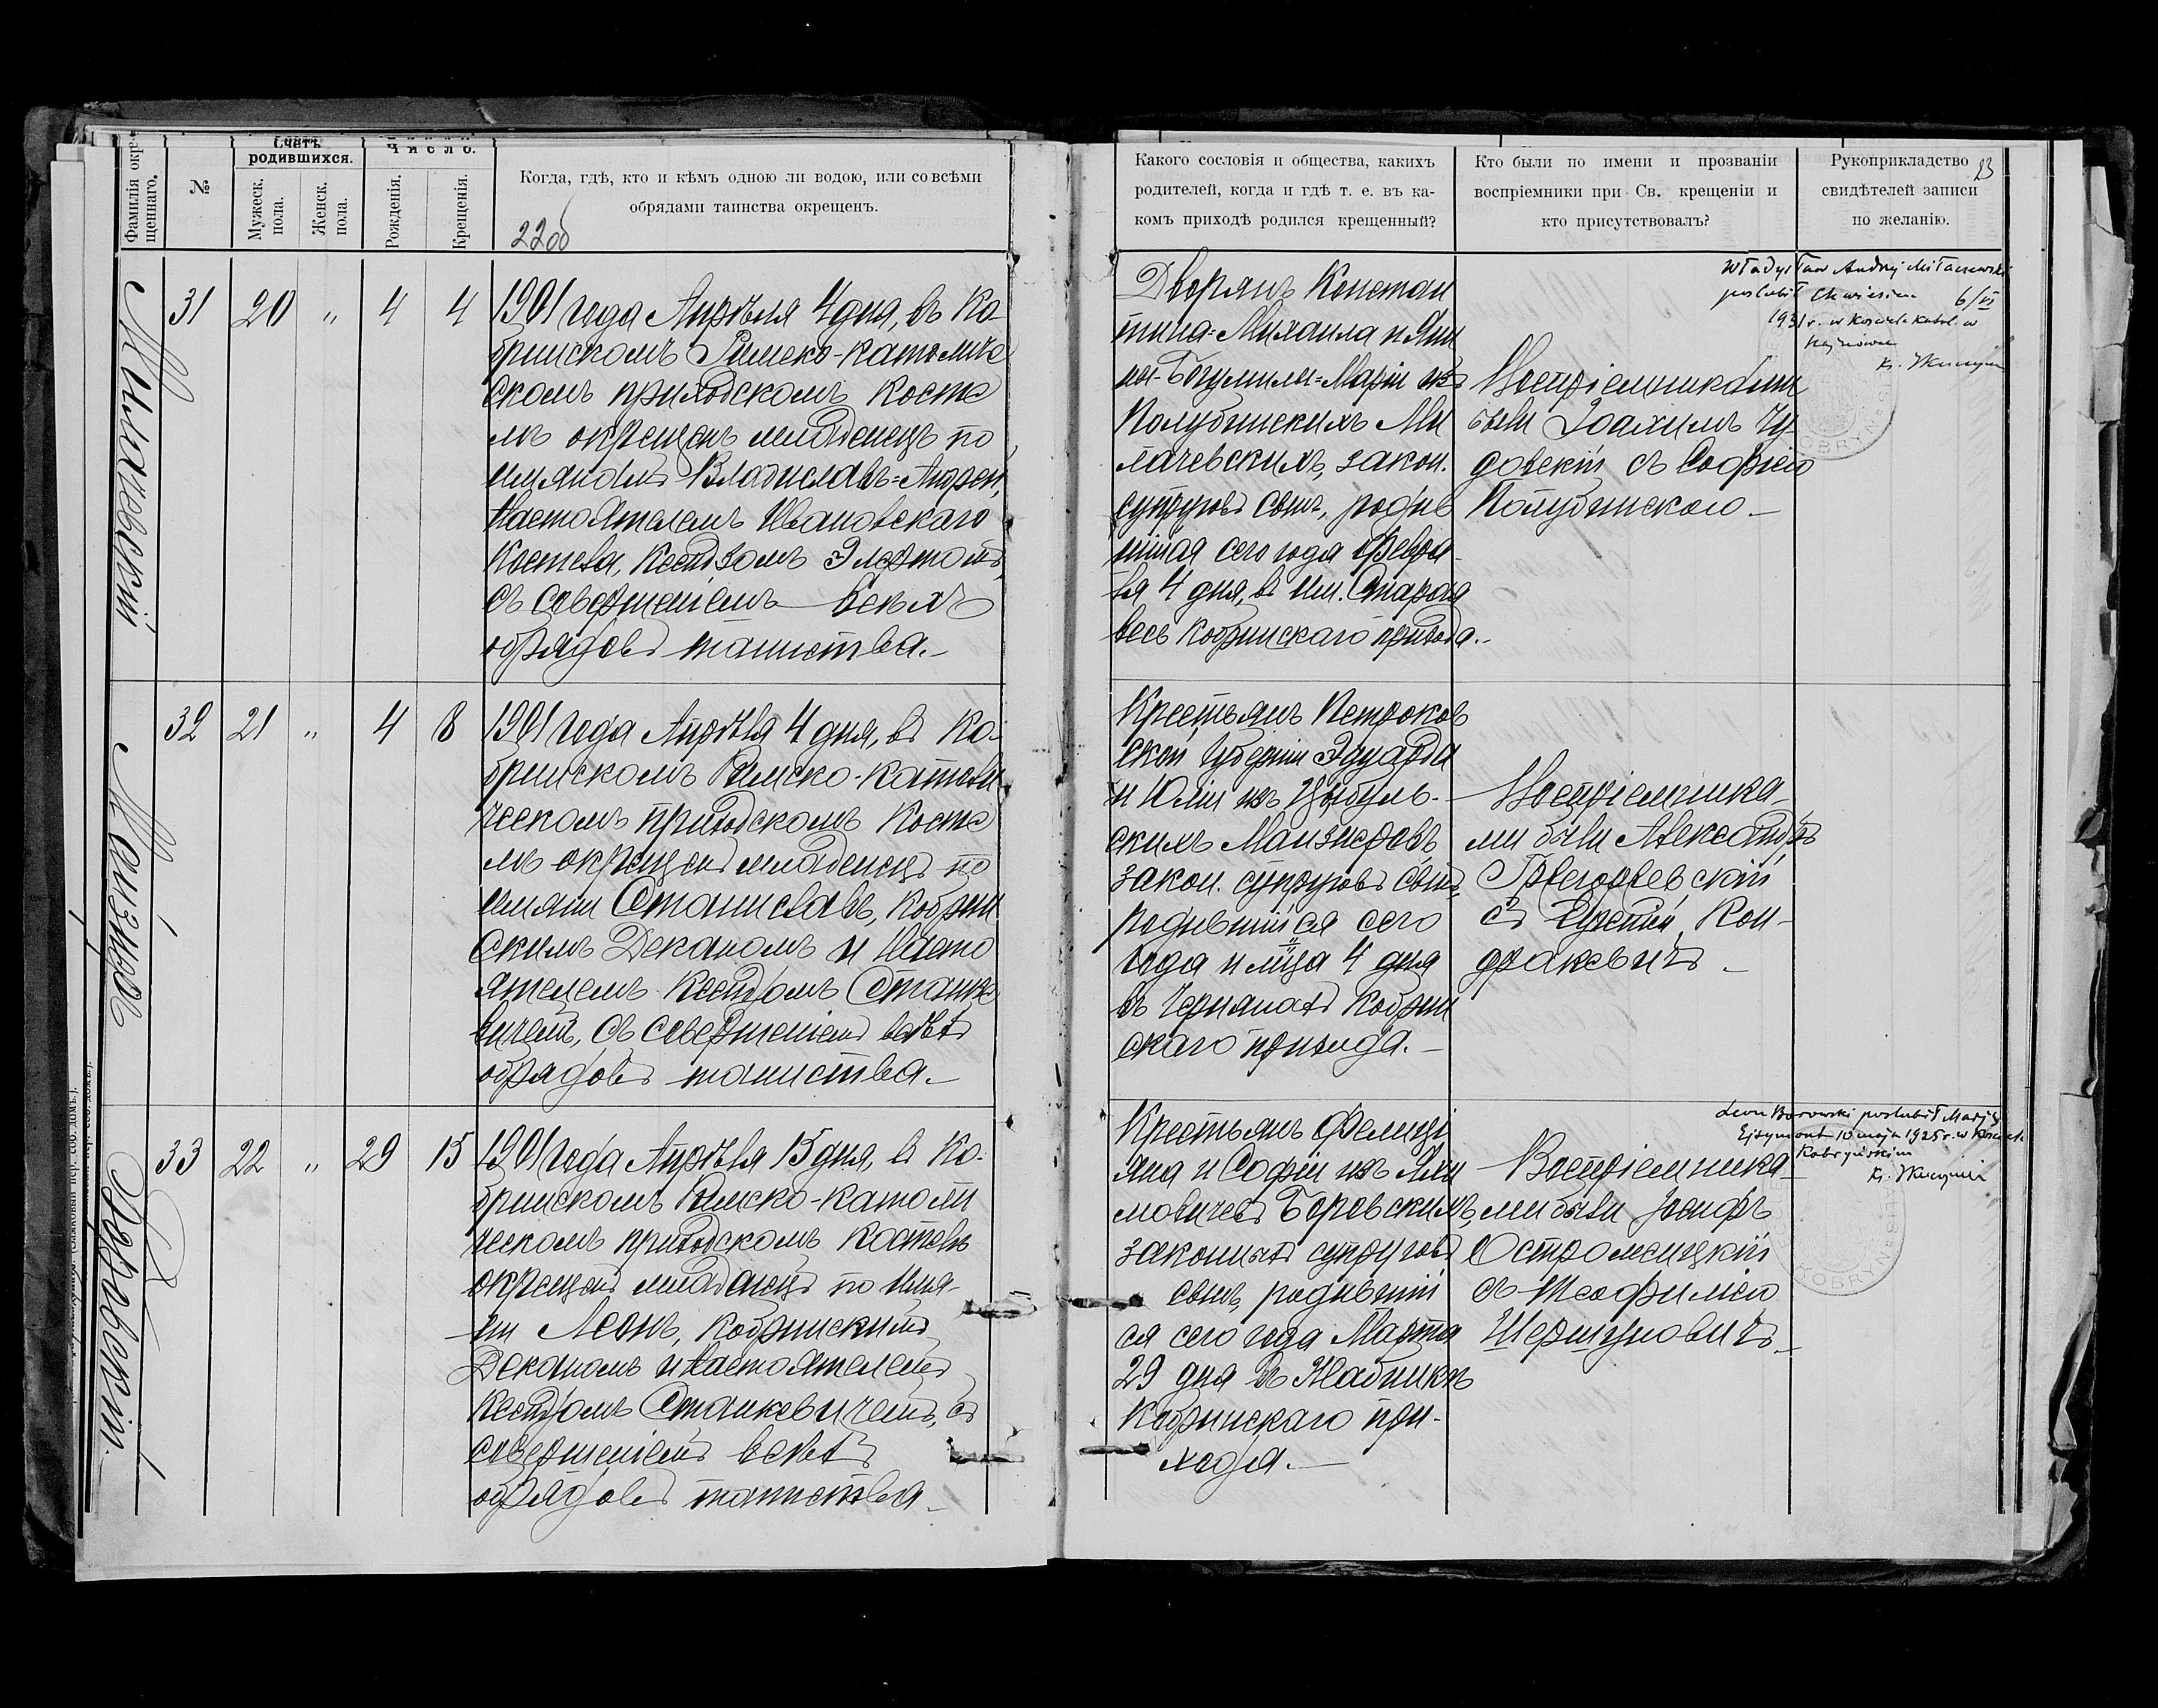 Фамилія окре-
щеннаго.
№
Счетъ
родившихся.
Мужеск.
пола.
Женск.
пола.
Число.
Рожденія.
Крещенія.
Когда, гдѣ, кто и кѣмъ одною ли водою, или со всѣми
обрядами таинства окрещенъ.
22об
Милачевскій
31
20
"
4
4
1901 года Апрѣля 4 дня, въ Ко-
бринскомъ Римско-Католиче
скомъ приходскомъ Косте
лѣ окрещенъ младенецъ по
имянамъ Владиславъ=Андрей,
Настоятелемъ Ивановскаго
Костела, Ксендзомъ
съ совершеніемъ всѣхъ
обрядовъ таинства.-
32
21
"
4
8
1901 года Апрѣля 4 дня, въ Ко-
бринскомъ Римско-Католи
ческомъ приходскомъ Косте
лѣ окрещенъ младенецъ по
имяни Станиславъ, Кобрин
скимъ Деканомъ и Насто
ятелемъ Ксендзомъ Станке
вичемъ, съ совершеніемъ всѣхъ
обрядовъ таинства.-
Боровскій
33
22
"
29
15
1901 года Апрѣля 15 дня, въ Ко-
бринскомъ Римско-Католи
ческомъ приходскомъ Костелѣ
окрещенъ младенецъ по имя-
ни Леонъ, Кобринскимъ
Деканомъ и Настоятелемъ
Ксендзомъ Станкевичемъ, съ
совершеніемъ всѣхъ
обрядовъ таинства.-
Какого сословія и общества, какихъ
родителей, когда и гдѣ т. е. въ ка-
комъ приходѣ родился крещенный?
Кто были по имени и прозваніи
воспріемники при Св. крещеніи и
кто присутствовалъ?
Рукоприкладство
свидѣтелей записи
по желанію.
23
Дворянъ Констан
тина=Михаила и Яни
ны-Богумилы=Маріи изъ
Полубинскихъ Ми
лачевскихъ, закон.
супруговъ сынъ, родив
шійся сего года Февра-
ля 4 дня, въ им. Старая
весь Кобринскаго прихода.-
Воспріемниками
были Іоахимъ Чу
довскій съ Софіею
Полубинскою.-
Władysław Andrzej Miłaczewski
poslubił 6/VI
1931 r. w Kosciele Katol. w
Крестьянъ Петроков
ской Губерніи Эдуарда
и Юліи изъ Цыбуль-
скихъ
закон. супруговъ сынъ,
родившійся сего
года и мца 4 дня
въ Кобрин
скаго прихода.-
Воспріемника-
ми были Александръ
съ Кон-
-
Крестьянъ Фелиці
яна и Софіи изъ
Боровскихъ,
законныхъ супруговъ
сынъ, родившій
ся сего года Марта
29 дня въ
Кобринскаго при-
хода.-
Воспріемника-
ми были Іосифъ
Остромецкій
съ Теофилею
-
Leon Borowski poslubił Marję
Ejsymont 10 maja 1925 r. w Kosciele
Kobryńskim
KOBRYN